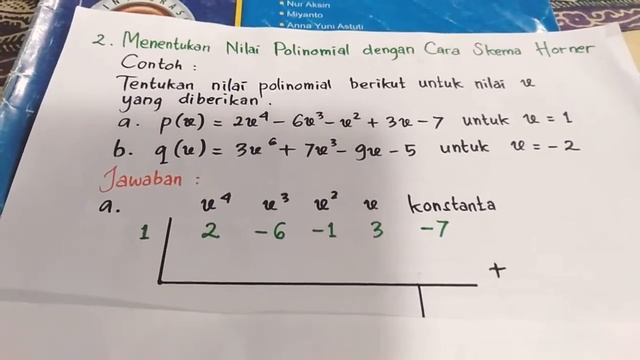 • Nur Aksin
• Miyanto
• Anna Yuni Astuti
2. Menentukan Nilai Polinomial dengan Cara Skema Horner
Contoh :
Tentukan nilai polinomial berikut untuk nilai x
yang diberikan.
a. p(x) = 2x⁴ - 6x³ - x² + 3x - 7 untuk x = 1
b. q(x) = 3x⁶ + 7x³ - 9x - 5 untuk x = - 2
Jawaban :
a. x⁴ x³ x² x konstanta
1 2 -6 -1 3 -7
+